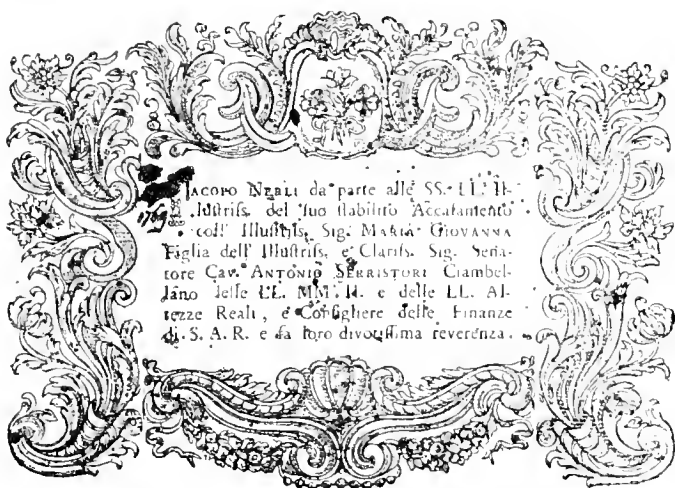 JACOPO NERLI da parte alle SS. LL. Il-
lustriss. del suo stabilito Accasamento
coll' Illustriss. Sig. MARIA GIOVANNA
Figlia dell' Illustriss. e Clariss. Sig. Sena-
tore Cav. ANTONIO SERRISTORI Ciambel-
lano delle LL. MM. II. e delle LL. Al-
tezze Reali, e Consigliere delle Finanze
di S. A. R. e fa loro divotissima reverenza.
1769